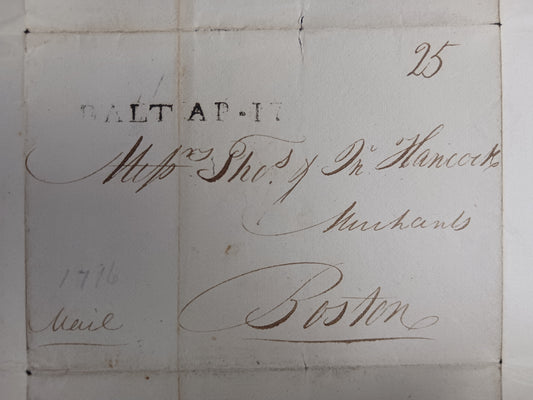 25
BALT AP·17
Messrs Thos. & Jn. Hancock
Merchants
1796
Mail
Boston